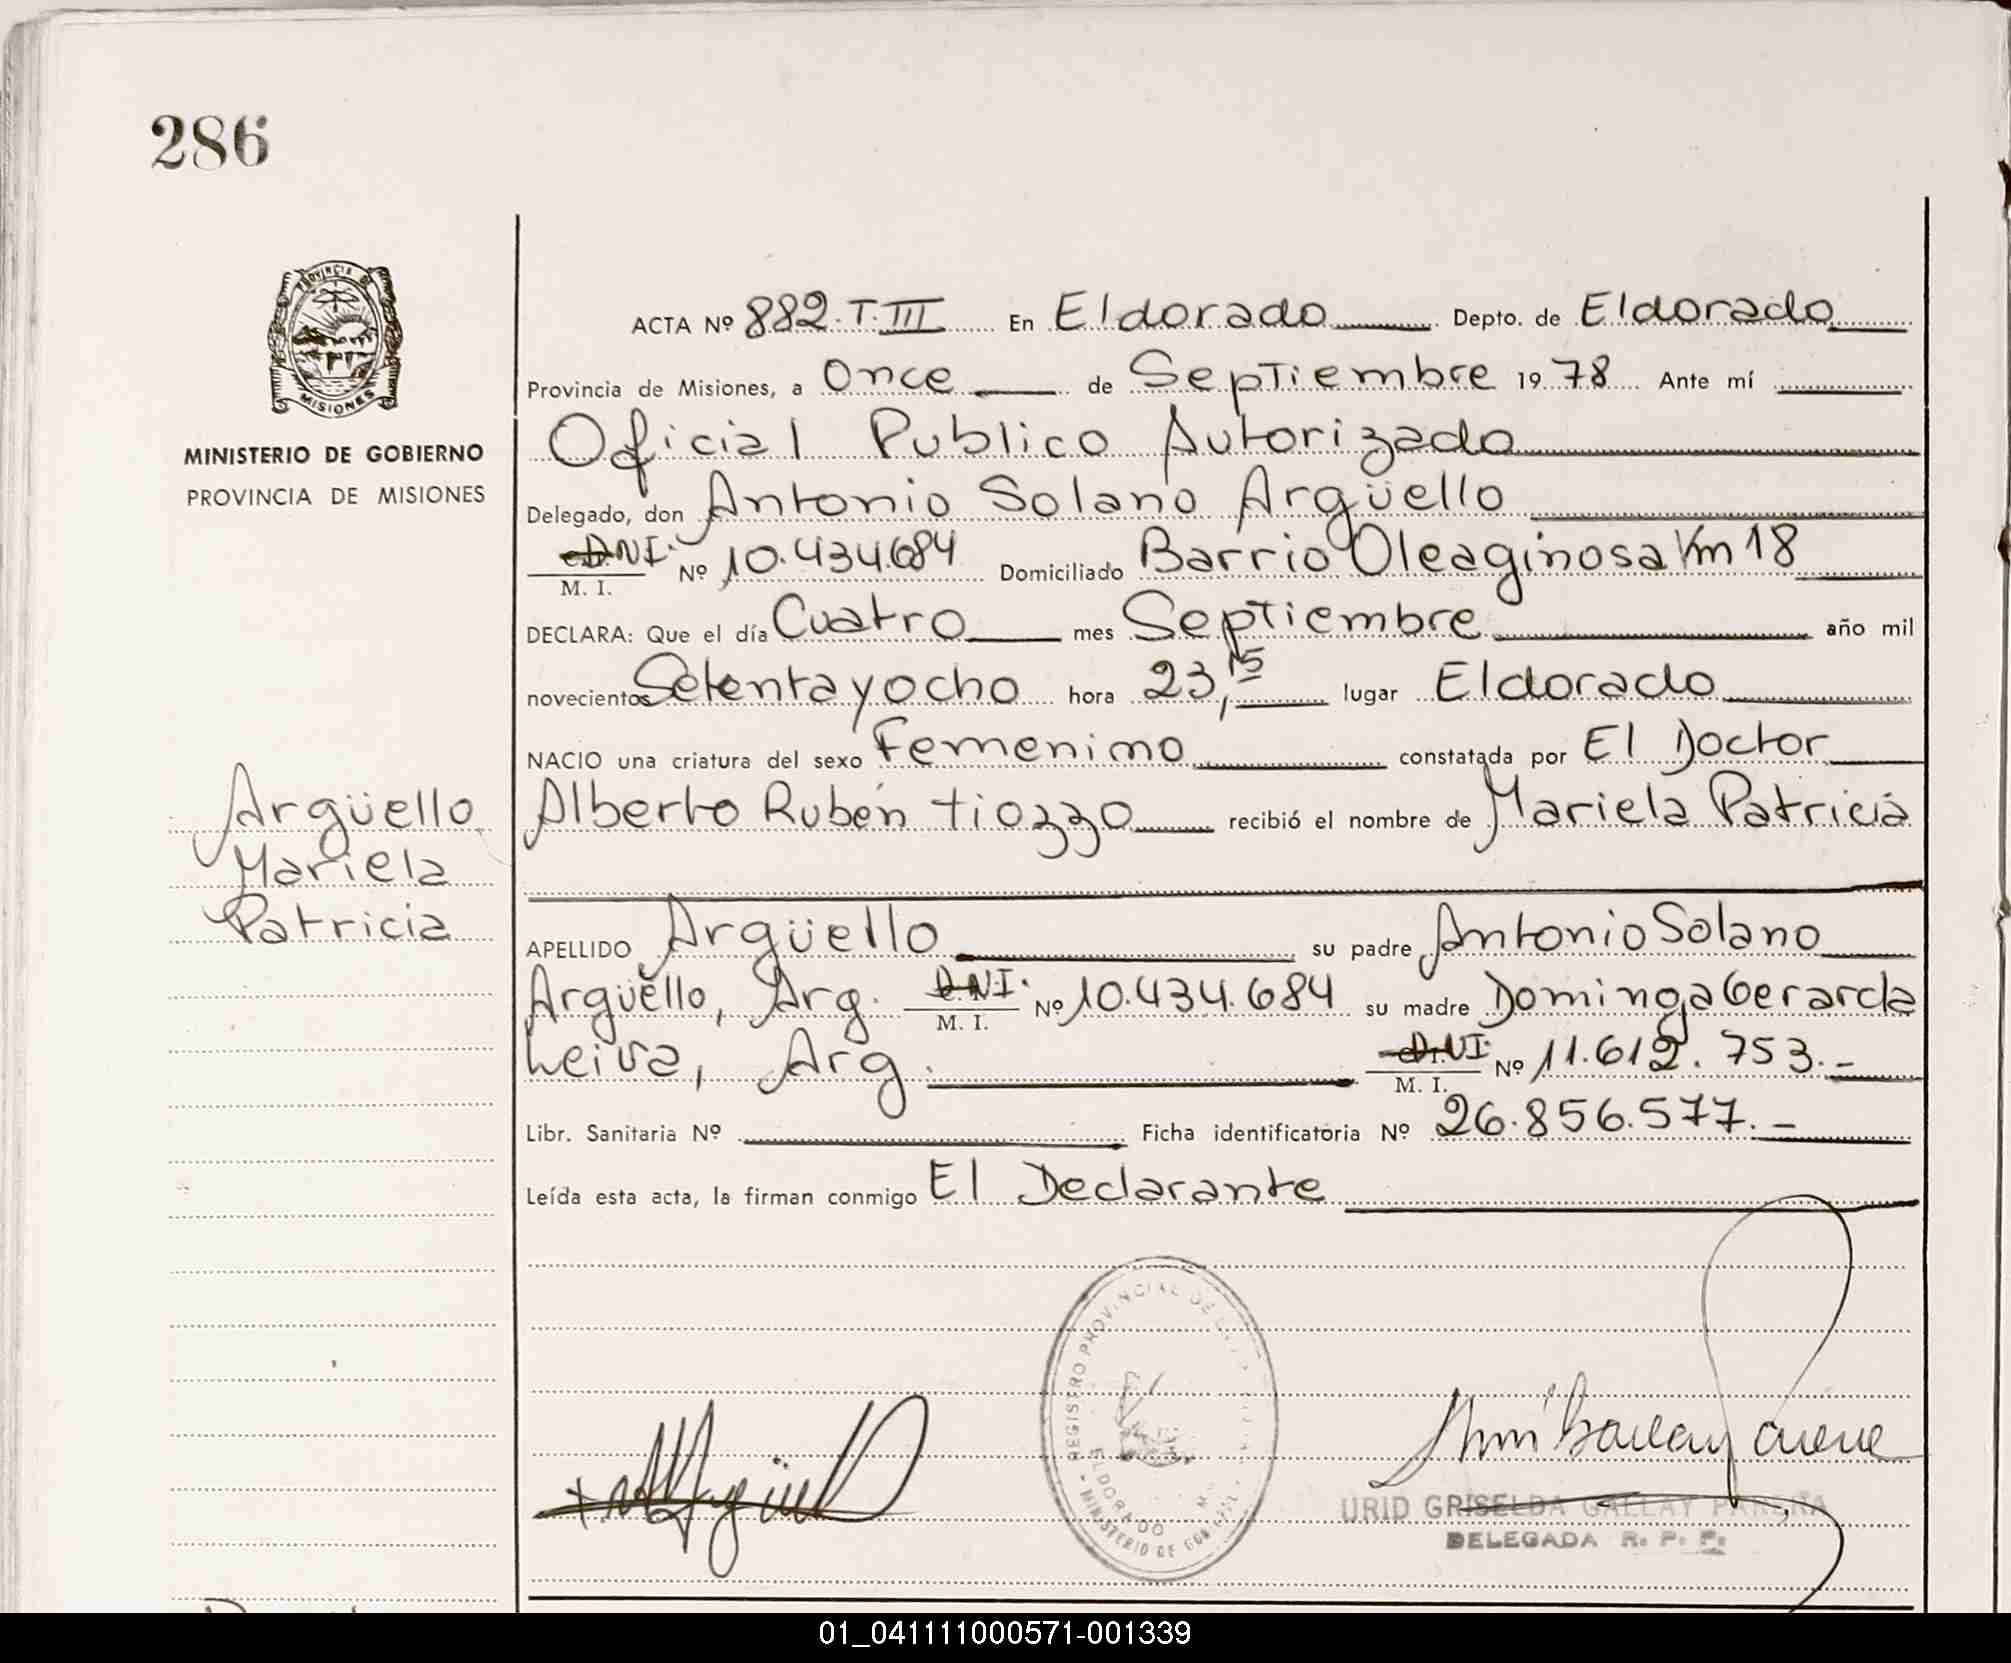 286
PROVINCIA DE
MISIONES
MINISTERIO DE GOBIERNO
PROVINCIA DE MISIONES
ACTA Nº 882.T.III En Eldorado Depto. de Eldorado
Provincia de Misiones, a Once de Septiembre 1978 Ante mí
Oficial Publico Autorizado
Delegado, don Antonio Solano Argüello
D.N.I. Nº 10.434.684 Domiciliado Barrio Oleaginosa Km 18
M. I.
DECLARA: Que el día Cuatro mes Septiembre año mil
novecientos Setenta y ocho hora 23,15 lugar Eldorado
NACIO una criatura del sexo Femenino constatada por El Doctor
Alberto Rubén tiozzo recibió el nombre de Mariela Patricia
Argüello
Mariela
Patricia
APELLIDO Argüello su padre Antonio Solano
Argüello, Arg. D.N.I. Nº 10.434.684 su madre Dominga Gerarda
M. I.
Leiva, Arg. D.N.I. Nº 11.612.753.-
M. I.
Libr. Sanitaria Nº Ficha identificatoria Nº 26.856.577.-
Leída esta acta, la firman conmigo El Declarante
REGISTRO PROVINCIAL DE
ELDORADO
MINISTERIO DE
URID GRISELDA GALLAY PEREIRA
DELEGADA R. P. P.
01_041111000571-001339